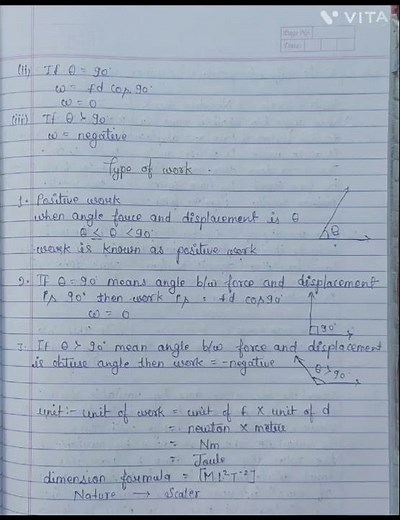 VITA
Page No.
Date:
(ii) If θ = 90°
w = fd cos 90°
w = 0
(iii) If θ > 90
w = negative
Type of work
1. Positive work
when angle force and displacement is θ
θ ≤ θ < 90°
work is known as positive work
θ
2. If θ = 90° means angle b/w force and displacement
is 90° then work is = fd cos 90°
w = 0
90°
3. If θ > 90° mean angle b/w force and displacement
is obtuse angle then work = -negative
θ > 90°
unit:- unit of work = unit of f × unit of d
= newton × metre
= Nm
= Joule
dimension formula = [M L² T⁻²]
Nature → Scaler